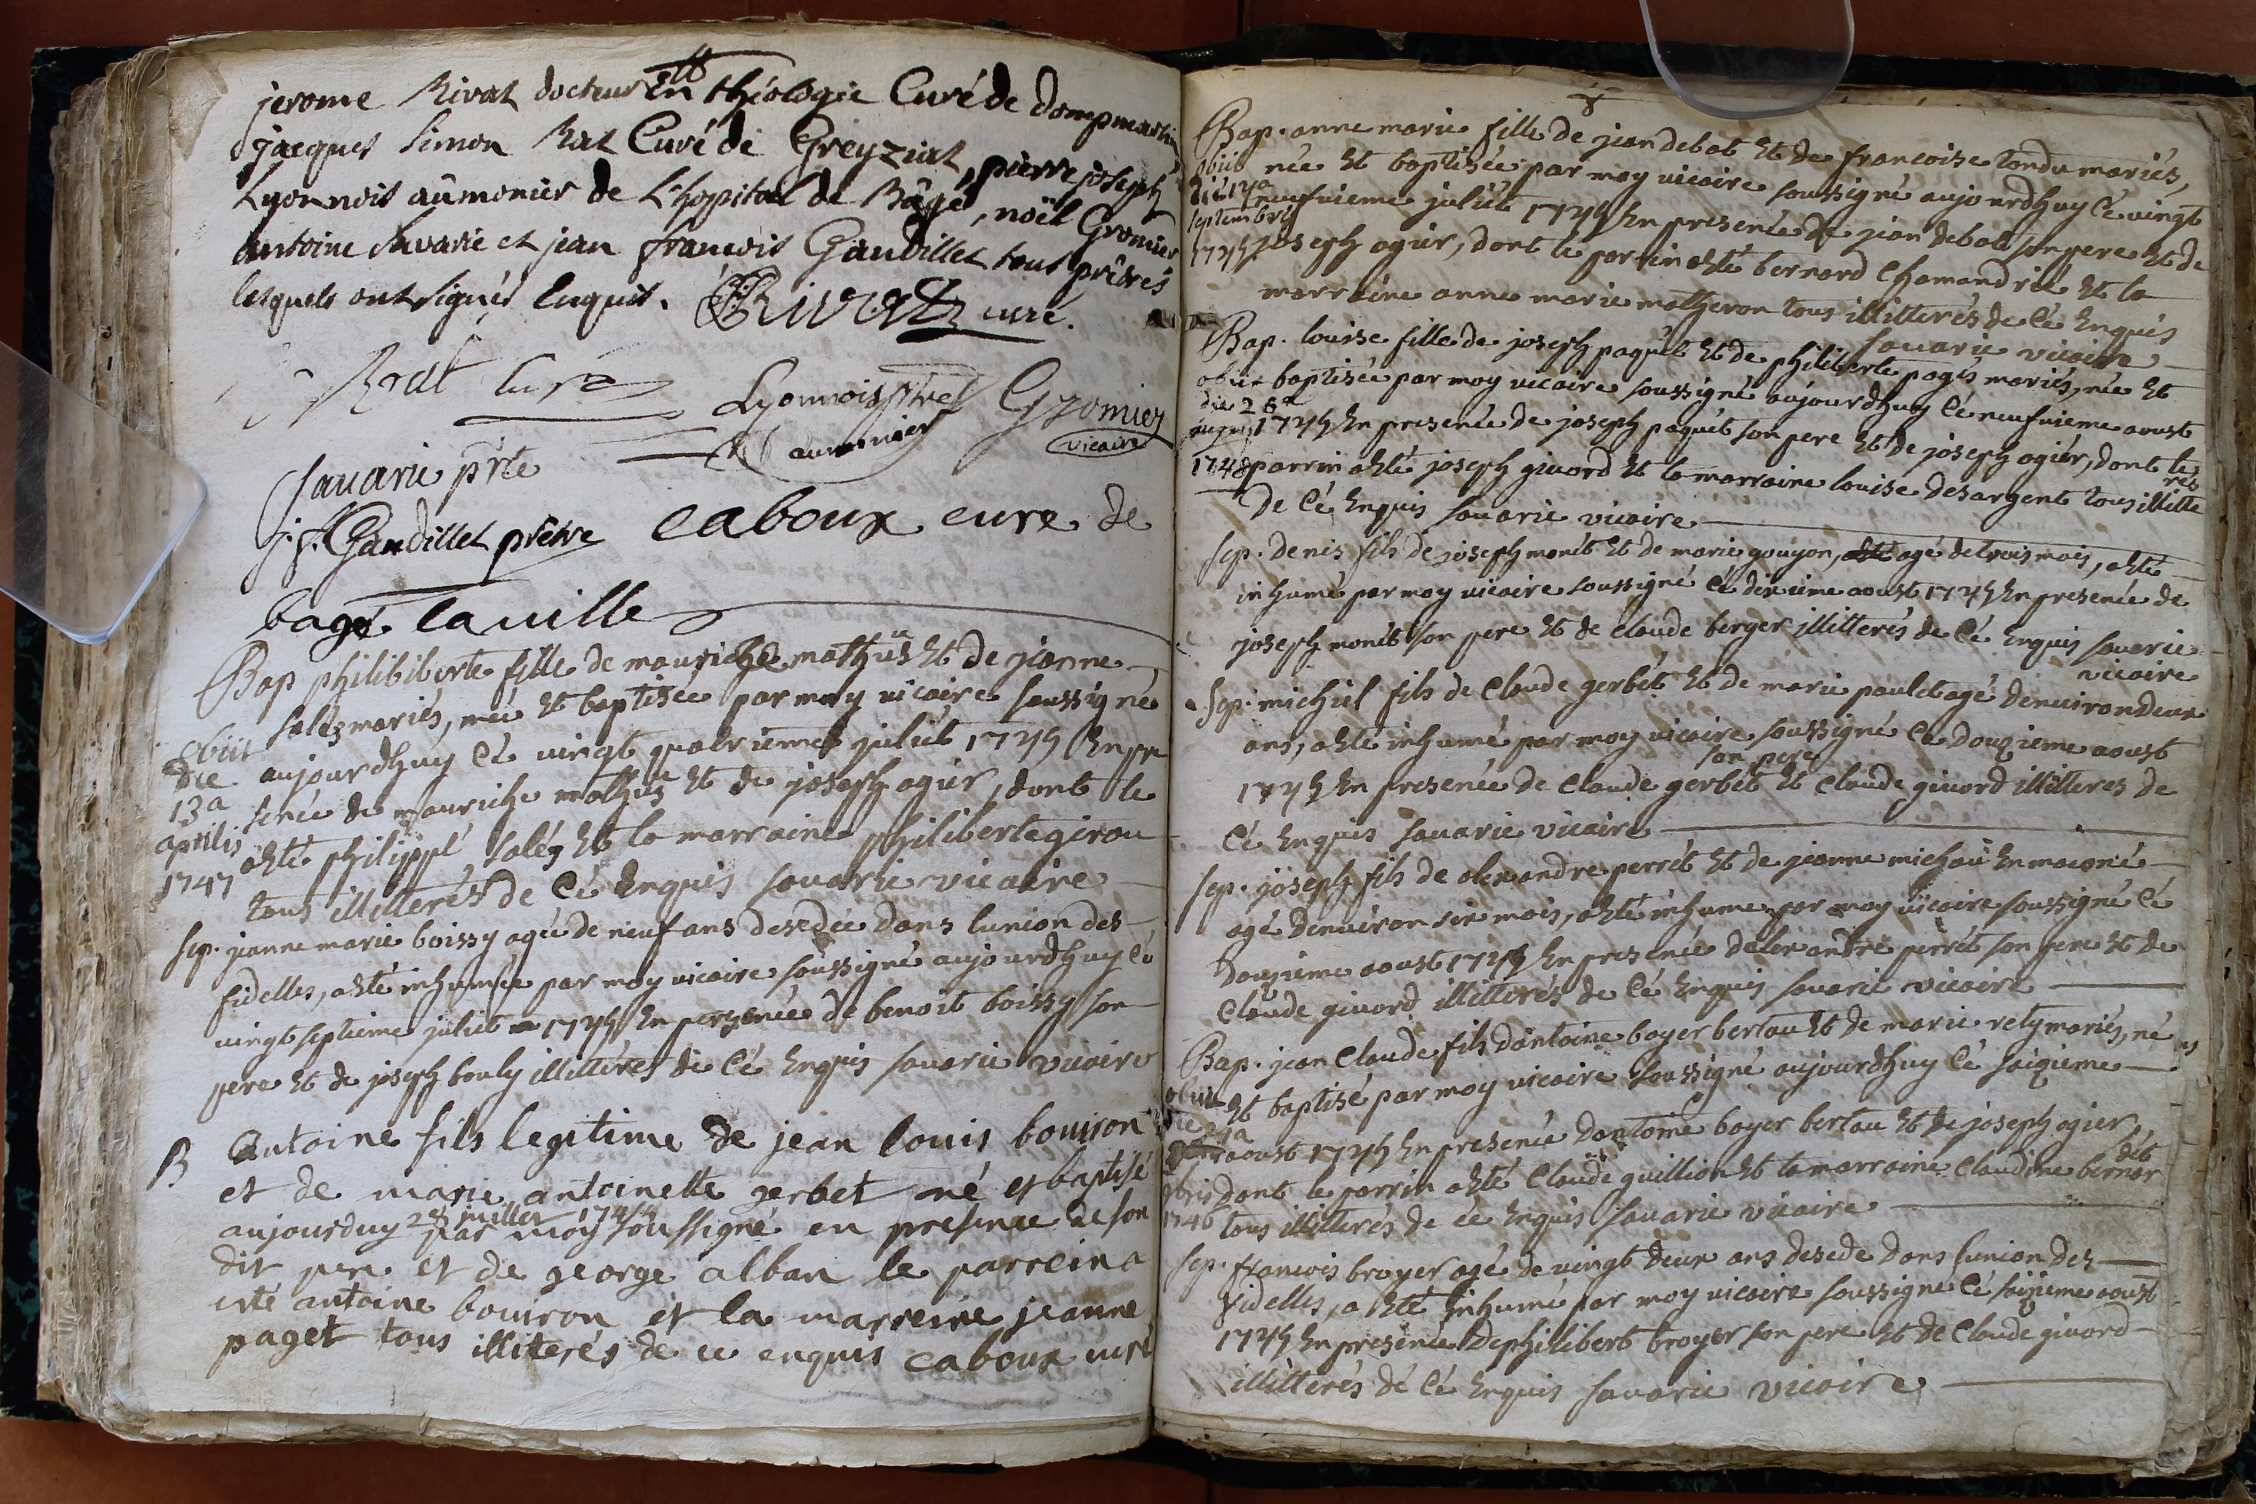 jerome Rivat docteur en théologie Curé de dompmartin
jacques Simon Rat Curé de Greyziat, pierre joseph
Lyonnois aûmonier de L'hopital de Bâgé, noël Gromier
antoine Savarie et jean françois Gaudillet tous prêtres
lesquels ont signés enquis. Rivat curé.
Rat curé
Lyonnois ptre
aumonier
Gromier
vicaire
Savarie prte
j. f. Gaudillet prêtre caboux cure de
bagé la ville
Bap philibiberte fille de mauriche mathus et de jeanne
saléz mariés, née et baptisée par moy vicaire soussigné
aujourdhuy cé vingt quatrieme juliét 1745 En pre
sence de mauriche mathus et de joseph agiér, dont le
a été philippé saléz et la marraine philiberte girou
tous illitterés de cé Enquis savarie vicaire
obiit
die
13a
aprilis
1747
Sep. jeanne marie boissy agée de neuf ans desedée dans lunion des
fidelles, a été inhumée par moy vicaire soussigné aujourdhuy cé
vingt septieme juliét 1745 En presence de benoit boissy son
pere et de joseph bouly illitterés de cé Enquis savarie vicaire
B Antoine fils legitime de jean louis bouiron
et de marie antoinette gerbet né et baptisé
aujourduy 28 juillet 1745 par moy soussigné en presence de son
dit pere et de george alban le parrein a
esté antoine bouiron et la marreine jeanne
paget tous illiterés de ce enquis caboux curé
Bap. anne marie fille de jean debat et de francoise tondu mariés,
née et baptisée par moy vicaire soussigné aujourdhuy cé vingt
neufvieme juliét 1745 En presence de jean debat son pere et de
joseph agiér, dont le parrin a été bernard Chamandrié et la
marraine anne marie matheron tous illitterés de cé Enquis
savarie vicaire
obiit
die 17a
septembris
1745
Bap. louise fille de joseph paquét et de philiberte pagés mariés, née et
baptisée par moy vicaire soussigné aujourdhuy cé neufvieme aoust
1745 En presence de joseph paquét son pere et de joseph agiér, dont le
parrin a été joseph givord et la marraine louise desargent tous illitte
rés
de cé Enquis savarie vicaire
obiit
die 28a
augusti
1748
Sep. denis fils de joseph monét et de marie goujon, agé de trois mois, a été
inhumé par moy vicaire soussigné cé dixieme aoust 1745 En presence de
joseph monét son pere et de claude berger illitterés de cé Enquis savarie
vicaire
Sep. michiel fils de Claude gerbét et de marie paulet agé denviron deux
ans, a été inhumé par moy vicaire soussigné cé douzieme aoust
1745 En presence de Claude gerbét son pere et Claude givord illitterés de
cé Enquis savarie vicaire
Sep. joseph fils de alexandre perrét et de jeanne michaû En maconé
agé denviron six mois, a été inhumé par moy vicaire soussigné cé
douzieme aoust 1745 En presence dalexandre perrét son pere et de
Claude givord illitterés de cé Enquis savarie vicaire
Bap. jean Claude fils dantoine boyer bertau et de marie rety mariés, né
et baptisé par moy vicaire soussigné aujourdhuy cé saizieme
aoust 1745 En presence dantoine boyer bertau et de joseph agier,
dont le parrin a été Claude guillion et la marraine Claudine bernar
dét
tous illitterés de cé Enquis savarie vicaire
obiit
die
1746
Sep. francois broyer agé de vingt deux ans desede dans lunion des
fidelles, a été inhumé par moy vicaire soussigné cé saizieme aoust
1745 En presence de philibert broyer son pere et de Claude givord
illitterés dé cé Enquis savarie vicaire